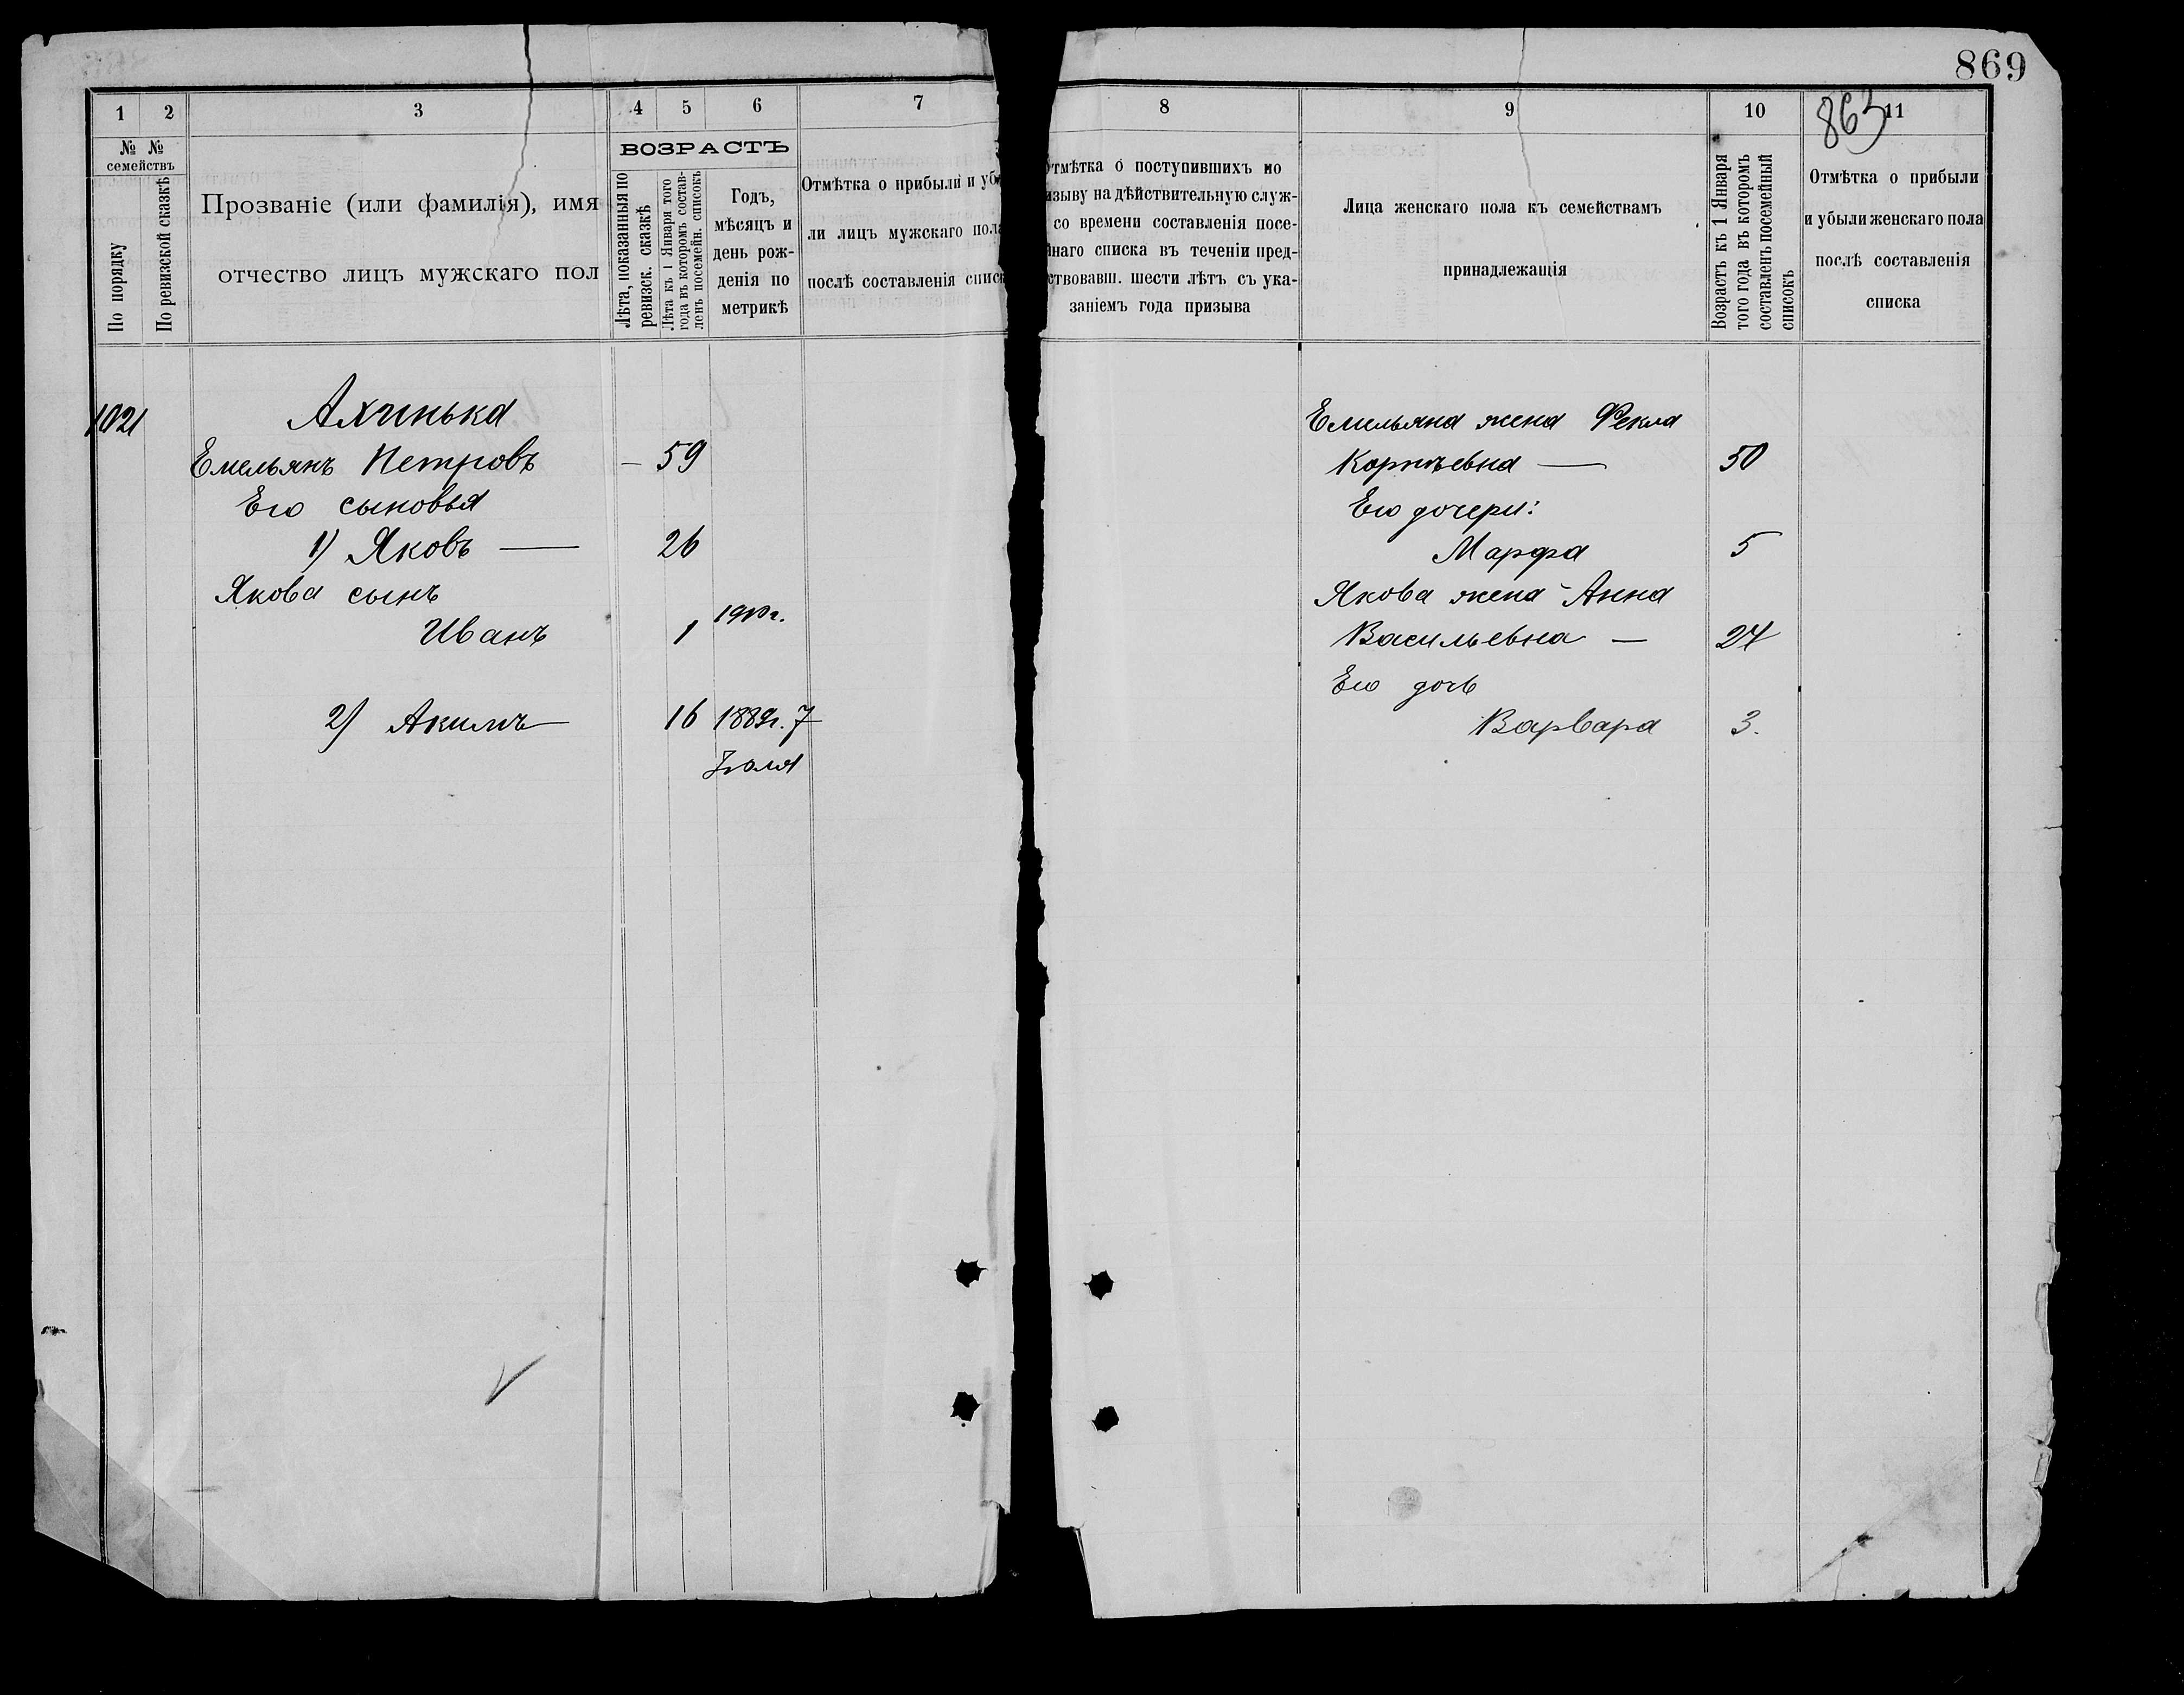 869
863
1 2 3 4 5 6 7
№ № семействъ
По порядку
По ревизской сказкѣ
Прозваніе (или фамилія), имя
отчество лицъ мужскаго пол
ВОЗРАСТЪ
Лѣта, показанныя по
ревизск. сказкѣ
Лѣта къ 1 Января того
года въ которомъ состав-
ленъ посемейн. списокъ
Годъ,
мѣсяцъ и
день рож-
денія по
метрикѣ
Отмѣтка о прибыли и уб
ли лицъ мужскаго пола
послѣ составленія списк
1021
Ахинька
Емельянъ Петровъ — 59
Его сыновья
1) Яковъ — 26
Якова сынъ
Иванъ 1
2) Акимъ — 16 1889г. 7
Іюля
8 9 10 11
тмѣтка о поступившихъ по
изыву на дѣйствительную служ-
со времени составленія посе-
йнаго списка въ теченіи пред-
ствовавш. шести лѣтъ съ ука-
заніемъ года призыва
Лица женскаго пола къ семействамъ
принадлежащія
Возрастъ къ 1 Января
того года въ которомъ
составленъ посемейный
списокъ
Отмѣтка о прибыли
и убыли женскаго пола
послѣ составленія
списка
Емельяна жена Фекла
Корнѣевна — 50
Его дочери:
Марфа 5
Якова жена - Анна
Васильевна — 24
Его дочь
Варвара 3.